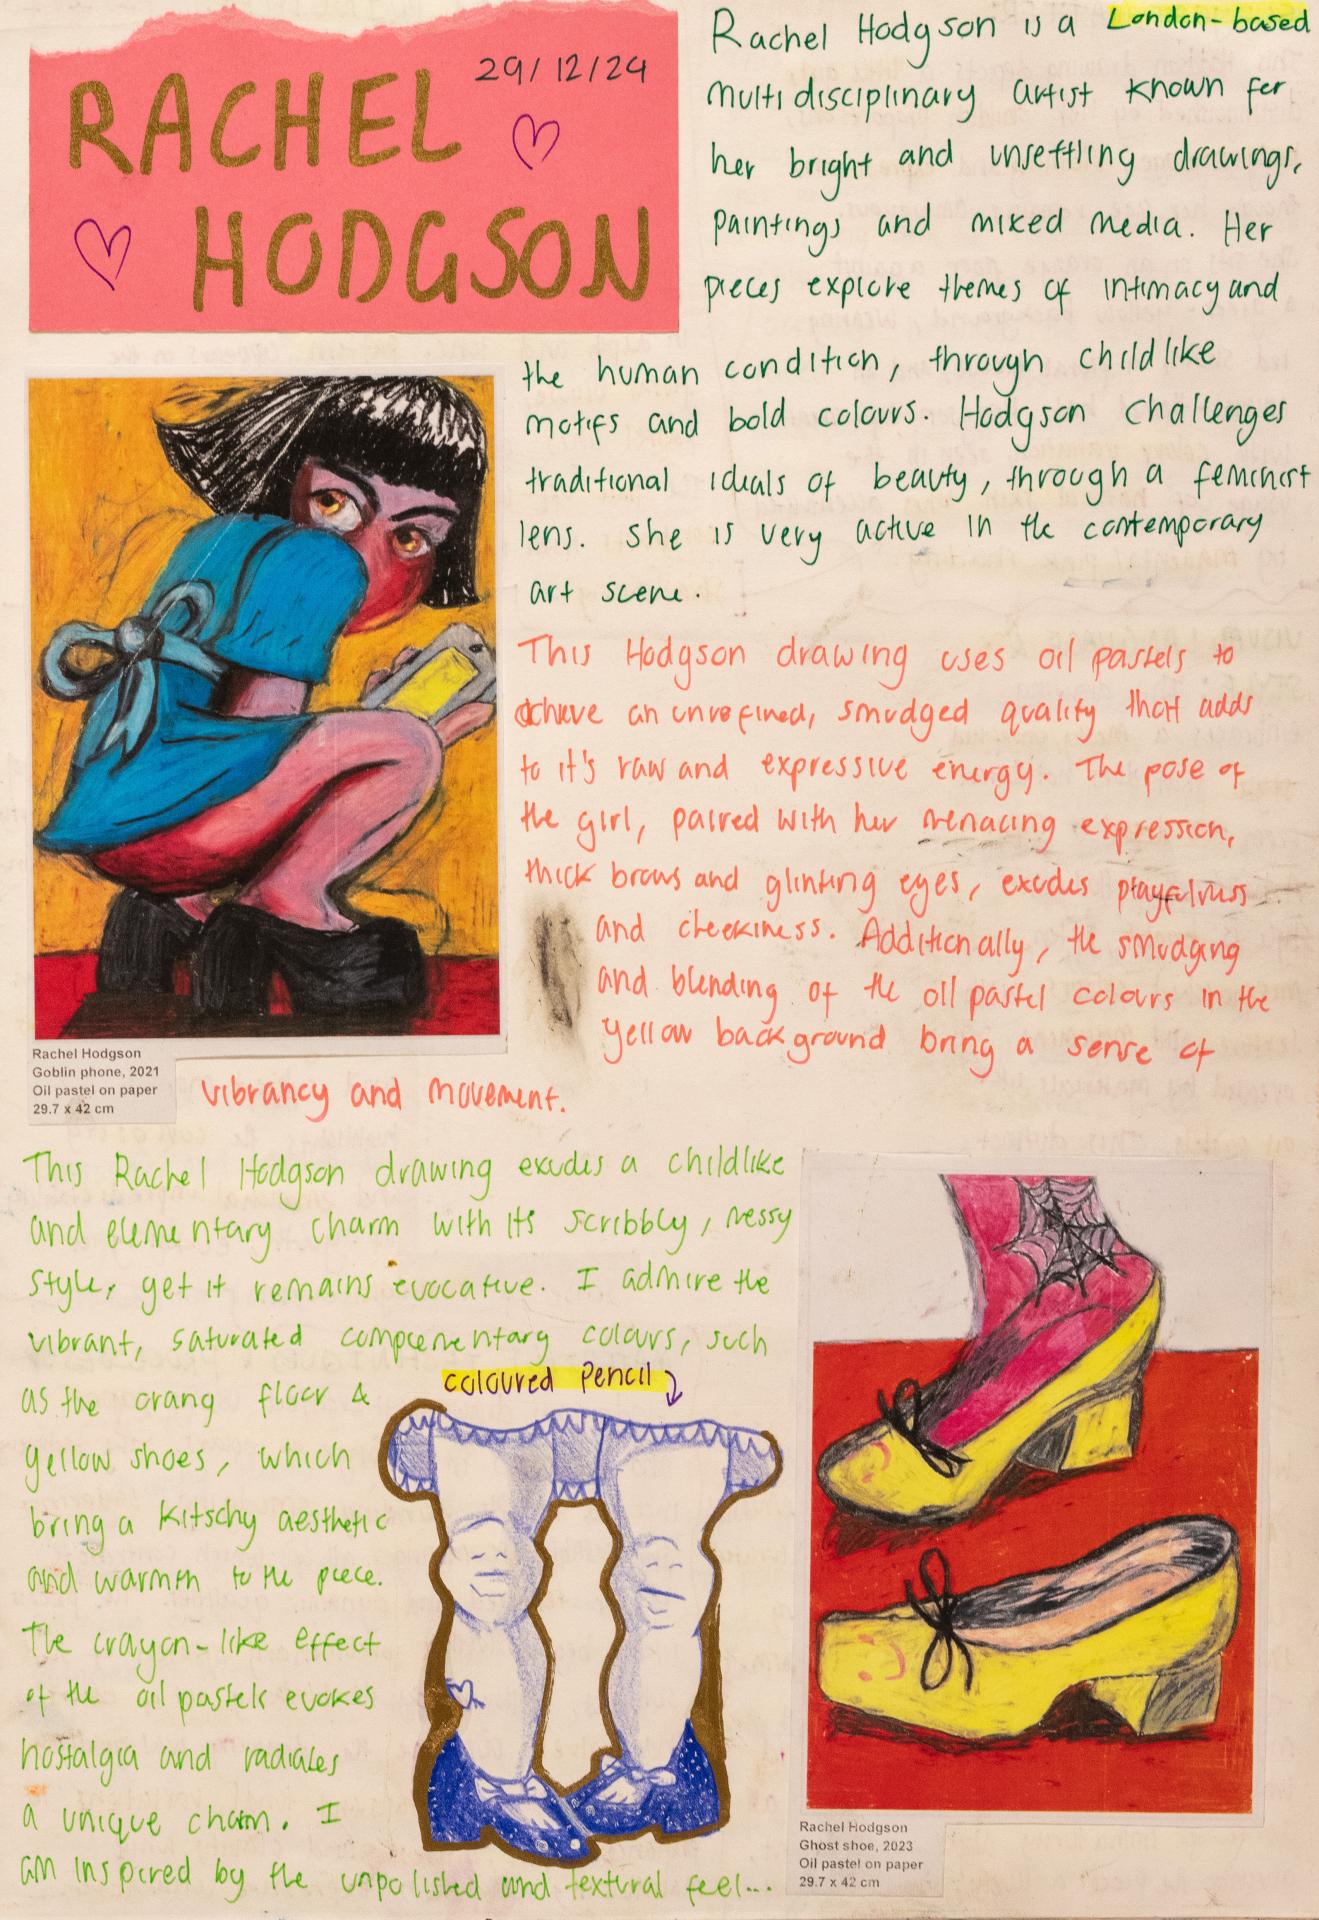 RACHEL
HODGSON
29/12/24
Rachel Hodgson is a London-based
multidisciplinary artist known for
her bright and unsettling drawings,
paintings and mixed media. Her
pieces explore themes of intimacy and
the human condition, through childlike
motifs and bold colours. Hodgson challenges
traditional ideals of beauty, through a feminist
lens. She is very active in the contemporary
art scene.
This Hodgson drawing uses oil pastels to
achieve an unrefined, smudged quality that adds
to it's raw and expressive energy. The pose of
the girl, paired with her menacing expression,
thick brows and glinting eyes, exudes playfulness
and cheekiness. Additionally, the smudging
and blending of the oil pastel colours in the
yellow background bring a sense of
vibrancy and movement.
Rachel Hodgson
Goblin phone, 2021
Oil pastel on paper
29.7 x 42 cm
This Rachel Hodgson drawing exudes a childlike
and elementary charm with its scribbly, messy
style, yet it remains evocative. I admire the
vibrant, saturated complementary colours, such
as the orang floor &
yellow shoes, which
bring a kitschy aesthetic
and warmth to the piece.
The crayon-like effect
of the oil pastels evokes
nostalgia and radiates
a unique charm. I
am inspired by the unpolished and textural feel...
coloured pencil
Rachel Hodgson
Ghost shoe, 2023
Oil pastel on paper
29.7 x 42 cm